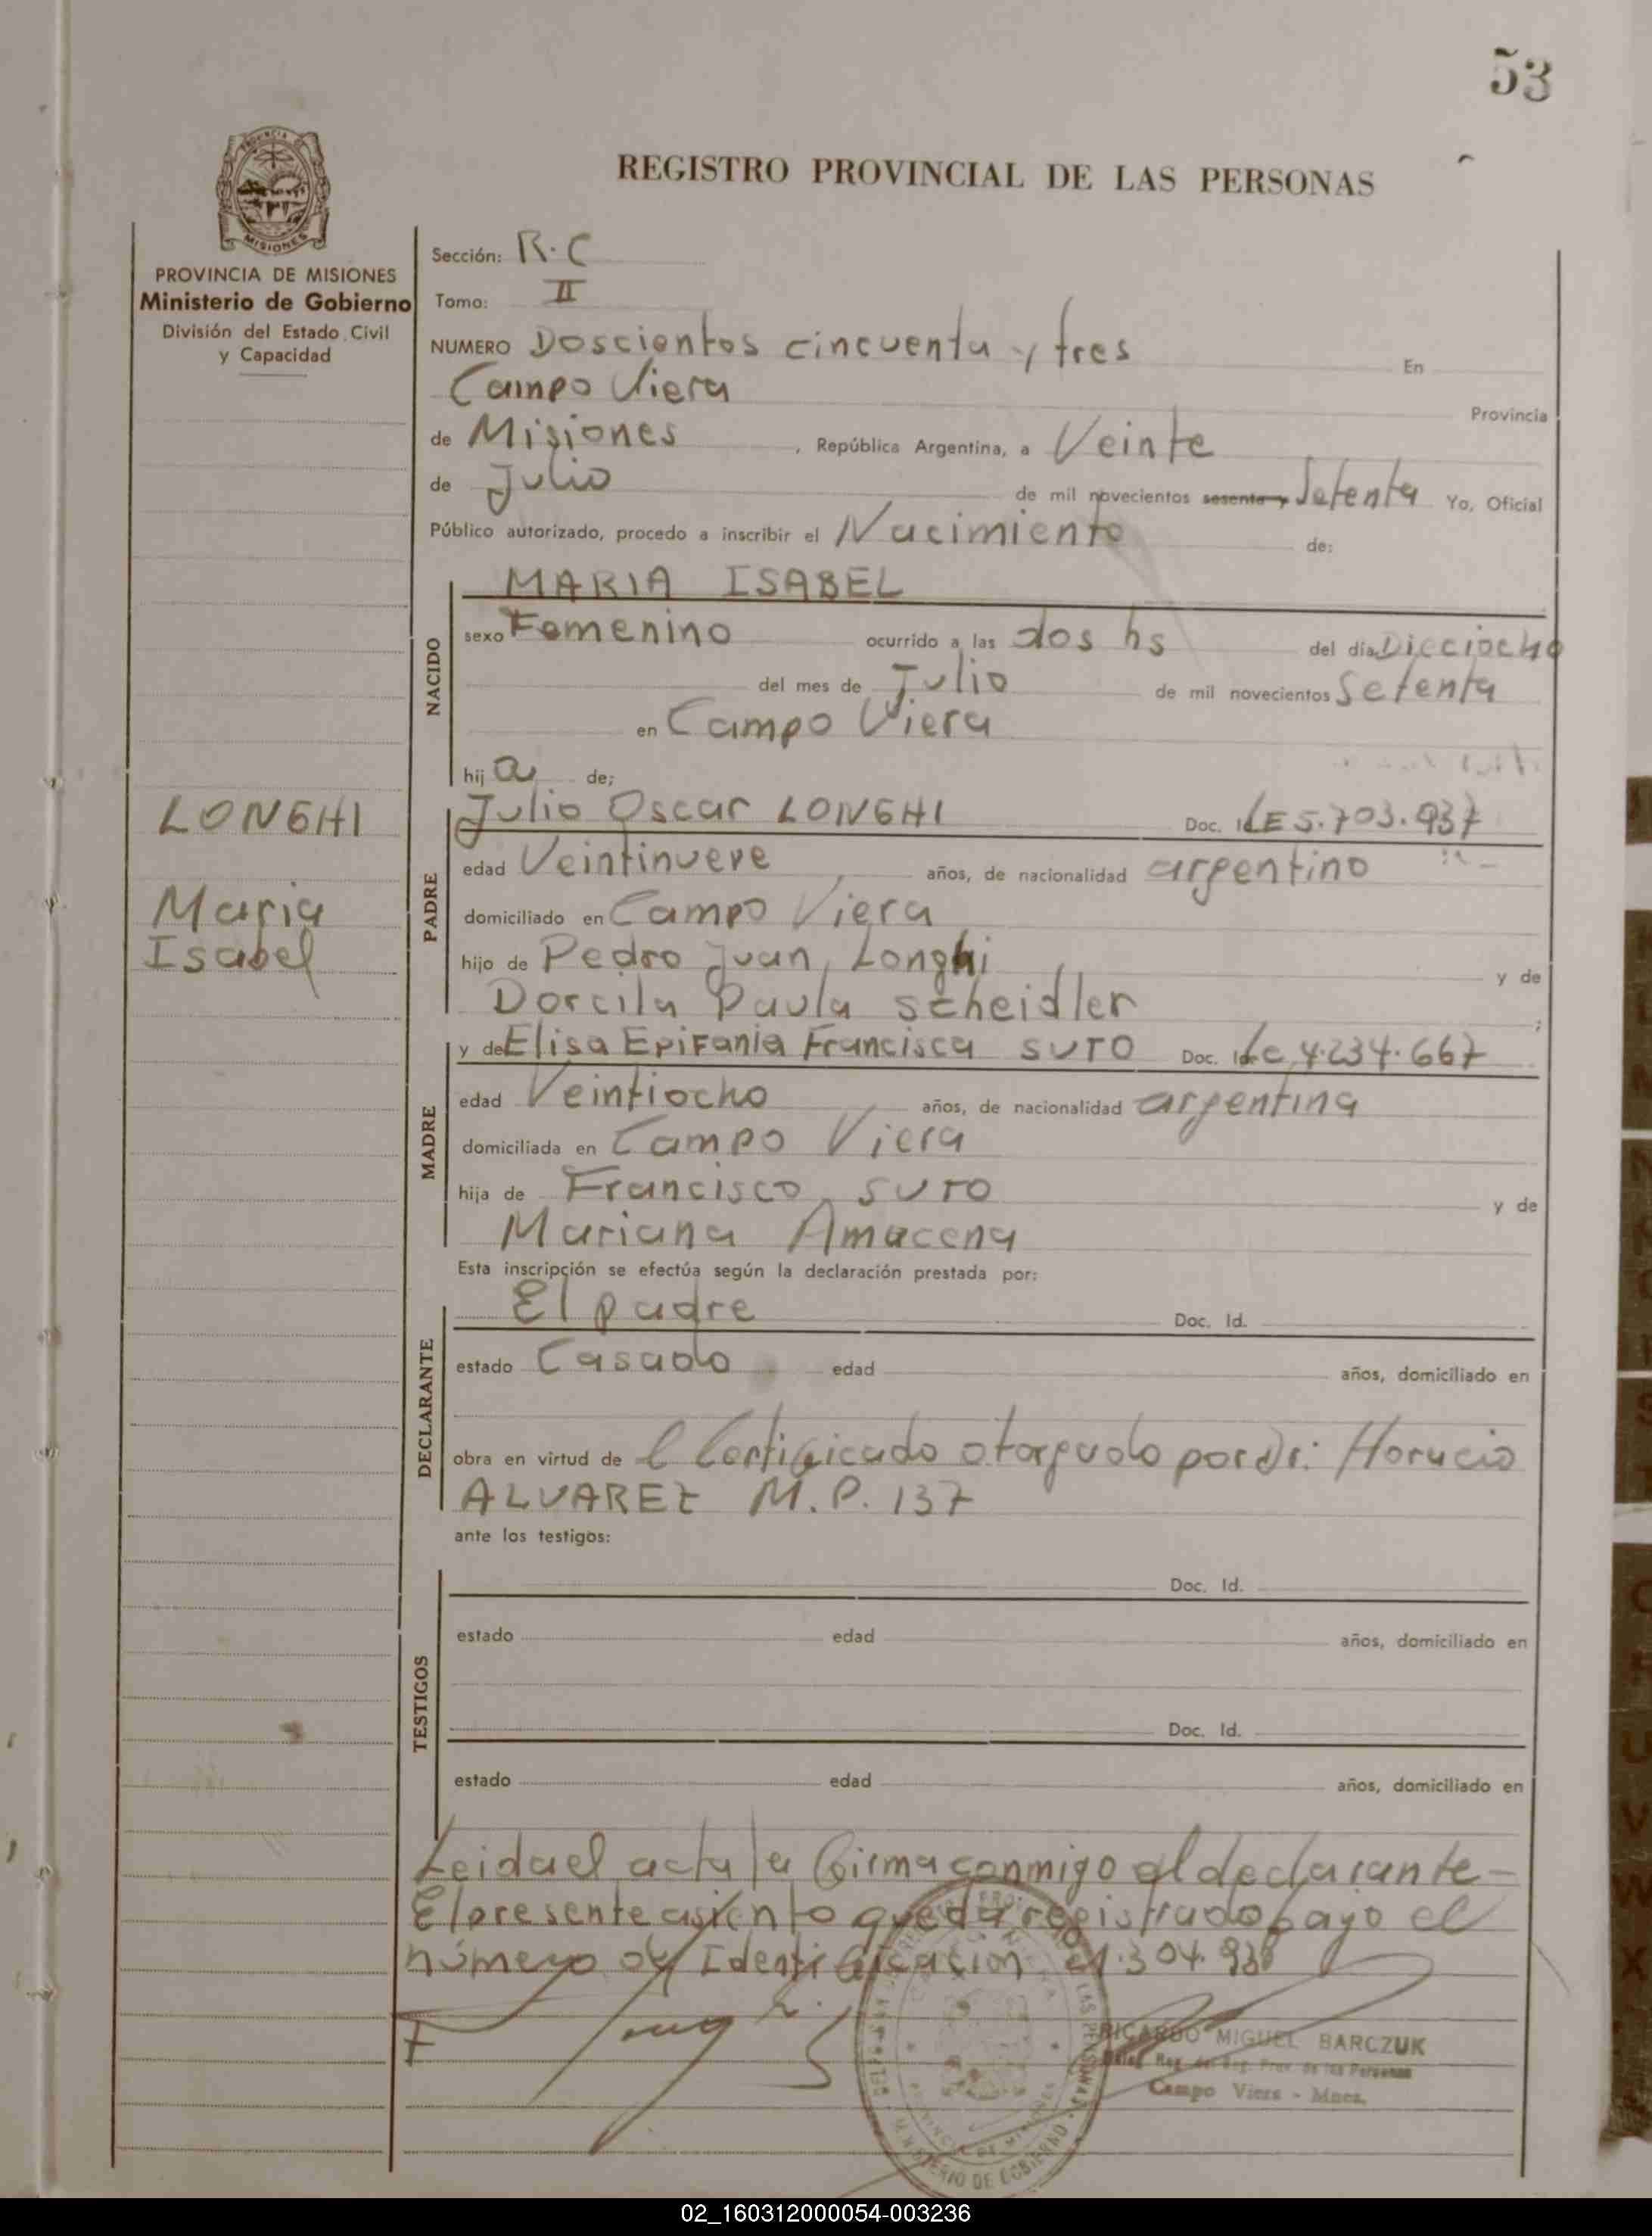 53
REGISTRO PROVINCIAL DE LAS PERSONAS
PROVINCIA DE MISIONES
Ministerio de Gobierno
División del Estado Civil
y Capacidad
Sección: R.C
Tomo: II
NUMERO Doscientos cincuenta y tres En
Campo Viera Provincia
de Misiones, República Argentina, a Veinte
de Julio de mil novecientos sesenta y Setenta Yo, Oficial
Público autorizado, procedo a inscribir el Nacimiento de:
NACIDO
MARIA ISABEL
sexo Femenino ocurrido a las dos hs del día Dieciocho
del mes de Julio de mil novecientos Setenta
en Campo Viera
hij a de;
LONGHI
Maria
Isabel
PADRE
Julio Oscar LONGHI Doc. Id. LE 5.703.937
edad Veintinueve años, de nacionalidad argentino
domiciliado en Campo Viera
hijo de Pedro Juan Longhi y de
Dorcila Paula Scheidler ;
MADRE
y de Elisa Epifania Francisca SUTO Doc. Id. Lc 4.234.667
edad Veintiocho años, de nacionalidad argentina
domiciliada en Campo Viera
hija de Francisco SUTO y de
Mariana Amacena
Esta inscripción se efectúa según la declaración prestada por:
DECLARANTE
El padre Doc. Id.
estado Casado edad años, domiciliado en
obra en virtud de l Certificado otorgado por Dr: Horacio
ALVAREZ M.P. 137
ante los testigos:
TESTIGOS
Doc. Id.
estado edad años, domiciliado en
Doc. Id.
estado edad años, domiciliado en
Leida el acta la firma conmigo el declarante-
El presente asiento queda registrado bajo el
número de Identificación 21.304.938
RICARDO MIGUEL BARCZUK
Deleg. Reg. del Reg. Prov. de las Personas
Campo Viera - Mnes.
MINISTERIO DE GOBIERNO
02_160312000054-003236